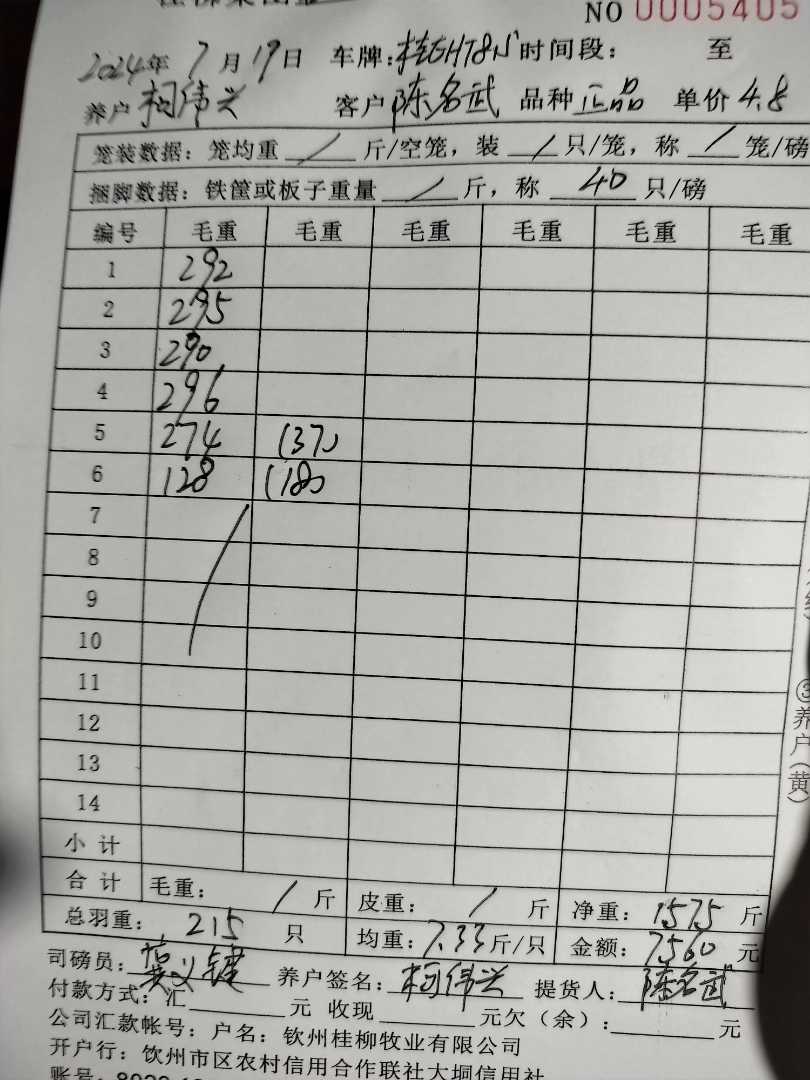 NO 0005405
2024年 7月 19日 车牌: 时间段: 至
养户 柯伟兴 客户 陈名武 品种 正品 单价 4.8
笼装数据: 笼均重 / 斤/空笼, 装 / 只/笼, 称 / 笼/磅
捆脚数据: 铁筐或板子重量 / 斤, 称 40 只/磅
编号 毛重 毛重 毛重 毛重 毛重 毛重
1 292
2 295
3 290
4 296
5 274 (37)
6 128 (18)
7
8
9
10
11
12
13
14
小计
合计 毛重: / 斤 皮重: / 斤 净重: 1575 斤
总羽重: 215 只 均重: 7.33 斤/只 金额: 7560 元
司磅员: 养户签名: 柯伟兴 提货人: 陈名武
付款方式: 汇 元 收现 元欠(余): 元
公司汇款帐号: 户名: 钦州桂柳牧业有限公司
开户行: 钦州市区农村信用合作联社大垌信用社
③养户(黄)